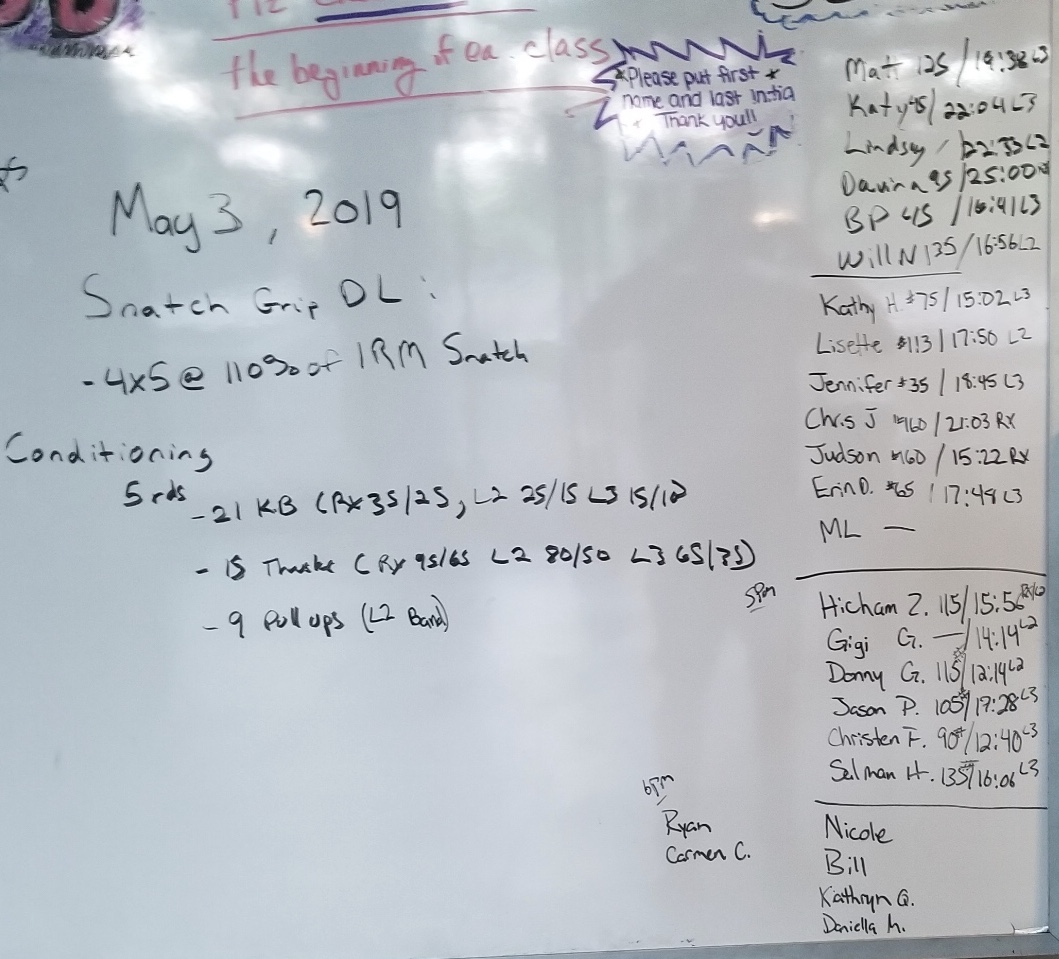 the beginning of ea. class
*Please put first *
name and last initia
Thank you!!
May 3, 2019
Snatch Grip DL:
- 4x5 @ 110% of 1RM Snatch
Conditioning
5 rds
- 21 KB (Rx 35/25, L2 25/15 L3 15/10
- 15 (Rx 95/65 L2 80/50 L3 65/35)
- 9 Pull ups (L2 Band)
Matt 125 / 19:38 L3
Katy 45/ 22:04 L3
Lindsey / 22:33 L2
Davina 95 /25:00
BP 45 / 16:41 L3
Will N 135 / 16:56 L2
Kathy H. #75 / 15:02 L3
Lisette #113 / 17:50 L2
Jennifer #35 / 18:45 L3
Chris J #160 / 21:03 RX
Judson #160 / 15:22 RX
Erin D. #65 / 17:49 L3
ML —
5pm
Hicham Z. 115/15:56
Gigi G. —/14:14 L2
Donny G. 115/12:14 L2
Jason P. 105#/17:28 L3
Christen F. 90#/12:40 L3
Selman H. 135#/16:06 L3
6pm
Ryan
Carmen C.
Nicole
Bill
Kathryn Q.
Daniella M.